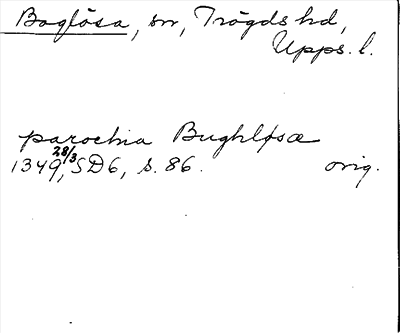 Boglösa, sn, Trögds hd,
Upps. l.
parochia Bughløsæ
1349 28/3, SD6, s. 86. orig.